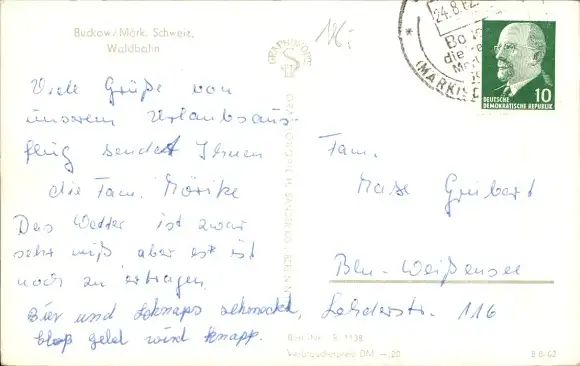 Buckow/Märk. Schweiz,
Waldbahn
Viele Grüße von
unserem Urlaubsaus-
flug sendet Ihnen
die Fam. Mörike
Das Wetter ist zwar
sehr miß aber es ist
noch zu ertragen.
Bier und Schnaps schmeckt,
bloß geld wird knapp.
24.8.62
(MÄRKISCH
DEUTSCHE
DEMOKRATISCHE REPUBLIK
10
GRAPHOKOPIE
Fam.
Maße Greibert
Bln-Weißensee
Lehderstr. 116
Verbraucherpreis DM —.20
B 6/62